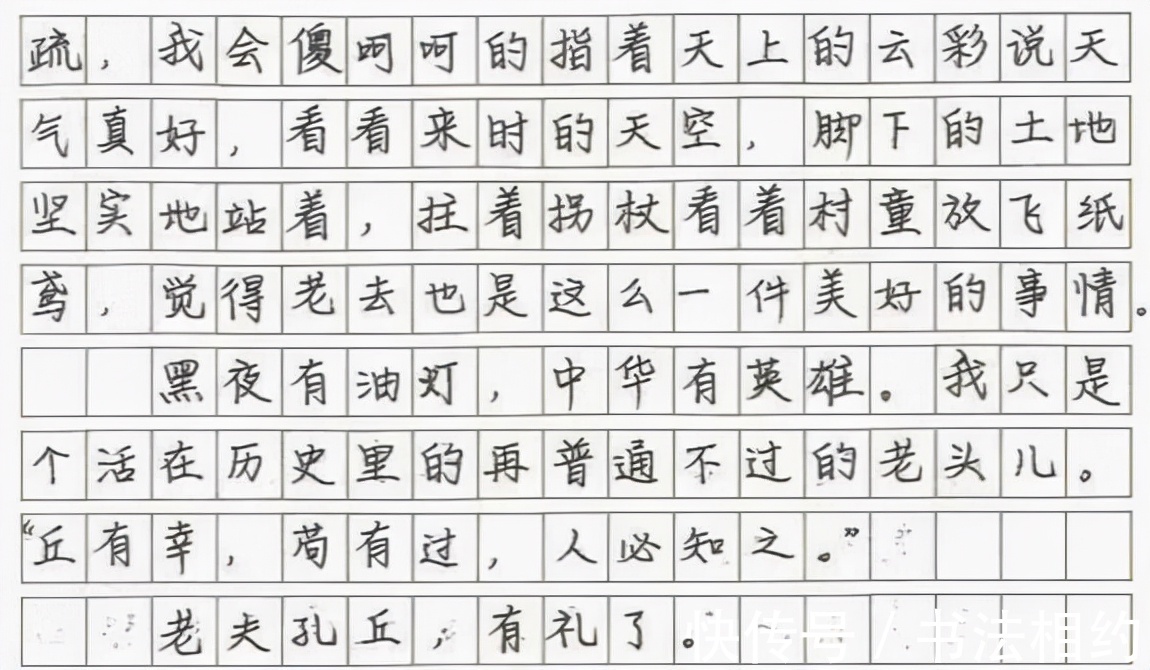 疏，我会傻呵呵的指着天上的云彩说天
气真好，看看来时的天空，脚下的土地
坚实地站着，拄着拐杖看着村童放飞纸
鸢，觉得老去也是这么一件美好的事情。
黑夜有油灯，中华有英雄。我只是
个活在历史里的再普通不过的老头儿。
“丘有幸，苟有过，人必知之。”
老夫孔丘，有礼了。
快传号 / 书法相约